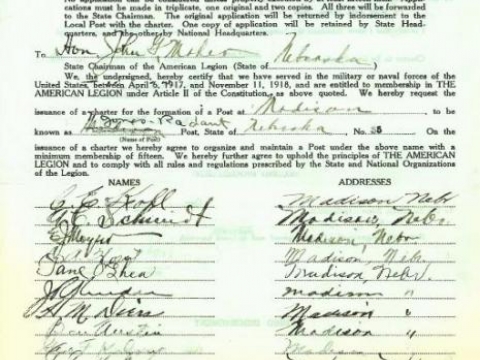 cations must be made in triplicate, one original and two copies. All three will be forwarded
to the State Chairman. The original application will be returned by indorsement to the
Local Post with the charter. One copy of application will be retained by State Head-
quarters, and the other by National Headquarters.
To Hon John G Maher Nebraska
State Chairman of the American Legion (State of )
We, the undersigned, hereby certify that we have served in the military or naval forces of the
United States between April 6, 1917, and November 11, 1918, and are entitled to membership in THE
AMERICAN LEGION under Article II of the Constitution, as above quoted. We hereby request the
issuance of a charter for the formation of a Post at Madison
known as Post, State of Nebraska No. 35 On the
(Name of Post)
issuance of a charter we hereby agree to organize and maintain a Post under the above name with a
minimum membership of fifteen. We hereby further agree to uphold the principles of THE AMERICAN
LEGION and to comply with all rules and regulations prescribed by the State and National Organizations
of the Legion.
NAMES ADDRESSES
Madison, Nebr
Schmidt Madison, Nebr.
E J Meyer Madison, Nebr
Madison, Nebr.
Shea Madison Nebr.
Madison "
H M Diers Madison "
Ben Austin Madison "
Madison "